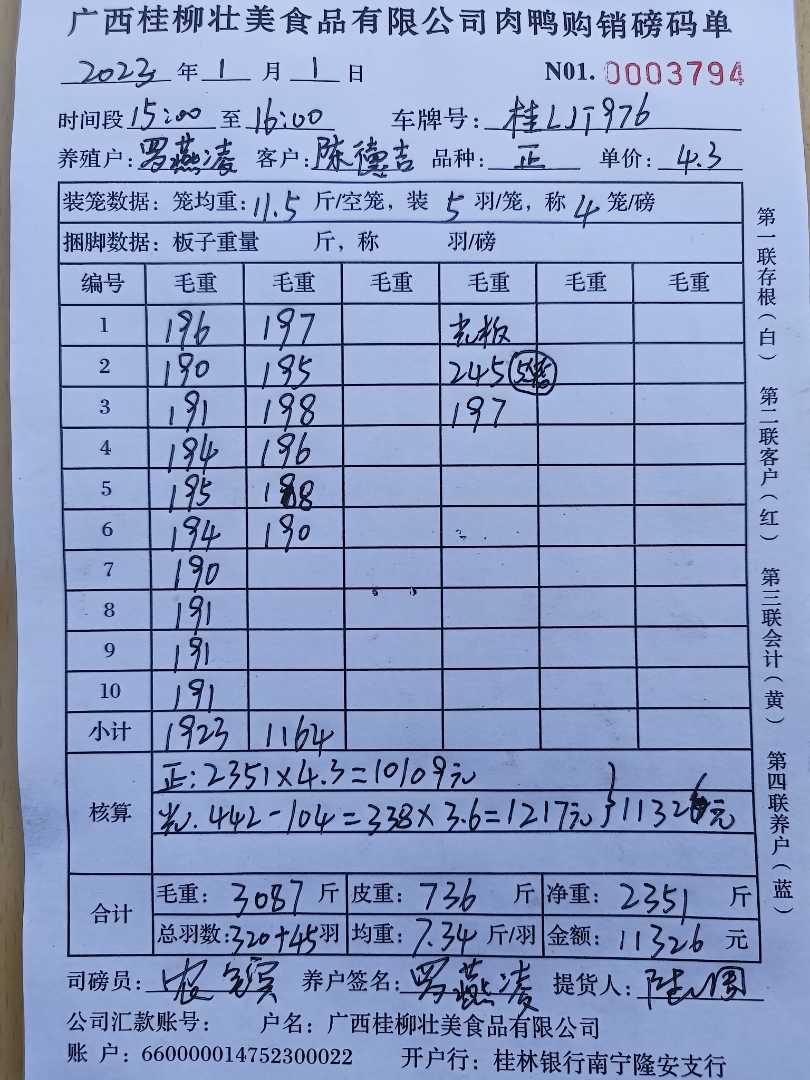 广西桂柳壮美食品有限公司肉鸭购销磅码单
2023 年 1 月 1 日 N01. 0003794
时间段 15:00 至 16:00 车牌号: 桂LJT976
养殖户: 罗燕凌 客户: 陈德吉 品种: 正 单价: 4.3
装笼数据: 笼均重: 11.5 斤/空笼, 装 5 羽/笼, 称 4 笼/磅
捆脚数据: 板子重量 斤, 称 羽/磅
编号 毛重 毛重 毛重 毛重 毛重 毛重
1 196 197 光板
2 190 195 245
3 191 198 197
4 194 196
5 195 188
6 194 190
7 190
8 191
9 191
10 191
小计 1923 1164
核算
正: 2351×4.3=10109元
光. 442-104=338×3.6=1217元 } 11326元
合计
毛重: 3087 斤 皮重: 736 斤 净重: 2351 斤
总羽数: 320+45 羽 均重: 7.34 斤/羽 金额: 11326 元
司磅员: 养户签名: 罗燕凌 提货人:
公司汇款账号: 户名: 广西桂柳壮美食品有限公司
账 户: 660000014752300022 开户行: 桂林银行南宁隆安支行
第一联存根(白)
第二联客户(红)
第三联会计(黄)
第四联养户(蓝)